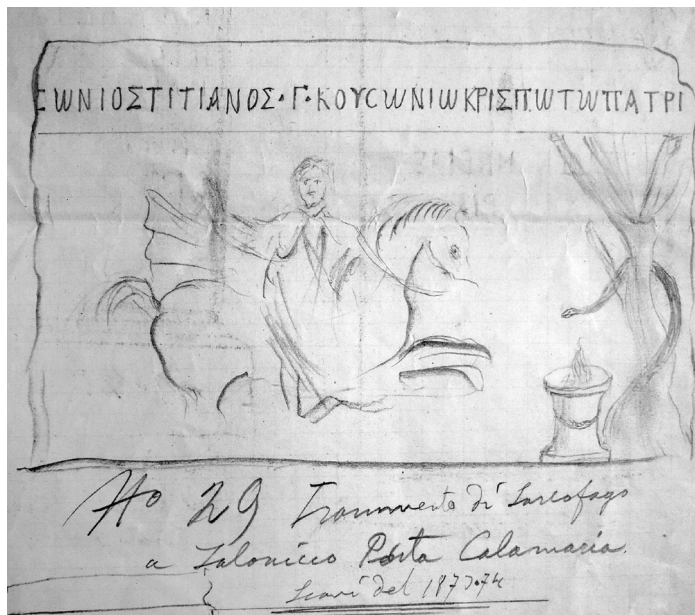 ΣΩΝΙΟΣΤΙΤΙΑΝΟΣ·Γ·ΚΟΥϹΩΝΙΩΚΡΙΣΠΩΤΩΠΑΤΡΙ
No 29 Frammento di Sarcofago
a Salonicco Porta Calamaria.
Scavi del 1873-74